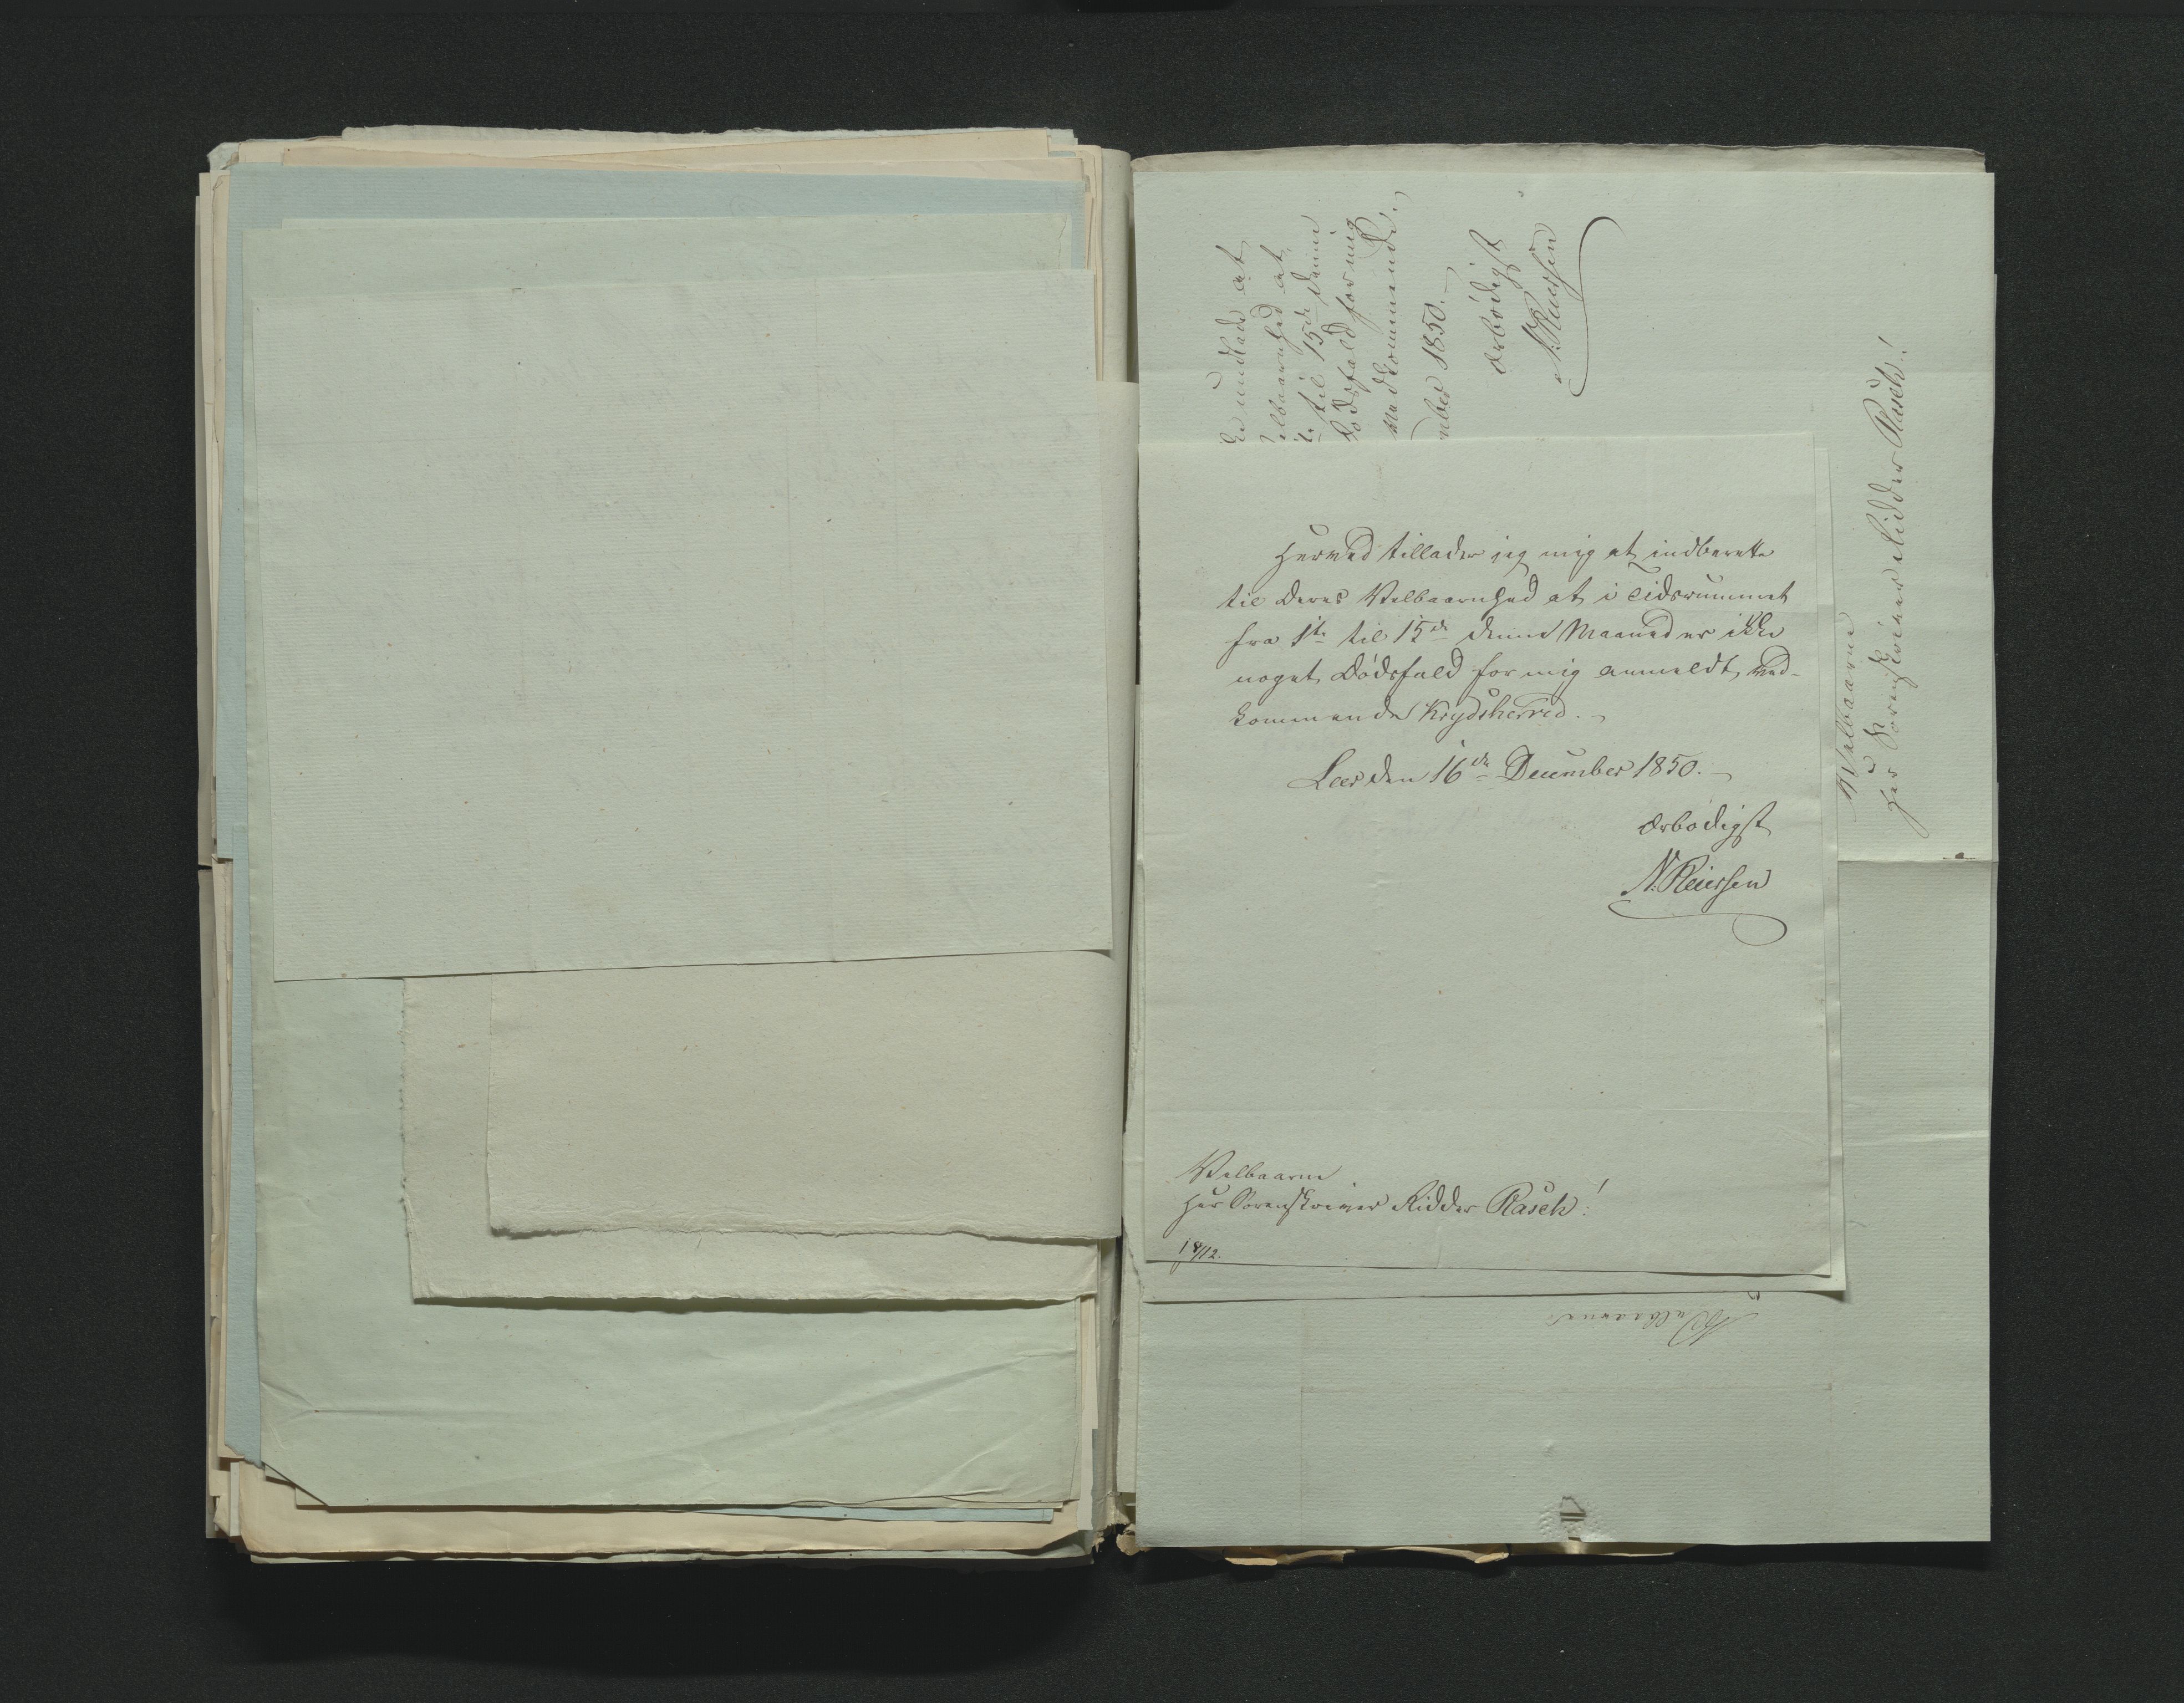 Herved tillader jeg mig at indberette
til Deres Velbaarenhed at i Tidsrummet
fra 1te til 15de denne Maaned er ikke
noget Dødsfald for mig anmeldt, ved-
kommende Krydsherred.
Leer den 16de December 1850.
Ærbødigst
N. Reiersen
Velbaarne
Herr Sorenskriver Ridder Rasch!
18/12.
at
Velbaarenhed at
te til 15de denne
Dødsfald for mig
vedkommende.
mber 1850.
Ærbødigst
N. Reiersen
Velbaarne
Herr Sorenskriver Ridder Rasch!
Velbaarne